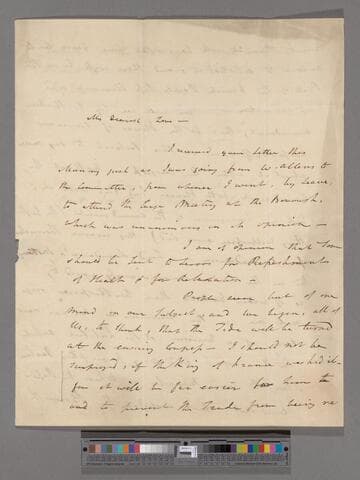 My Dearest Tom —
I received your Letter this
Morning just as I was going from to attend to
the Committee, from whence I went, by leave,
to attend the Meeting at the Borough,
which was unanimous in its opinion —
I am of opinion that Tom
should be sent to for Refreshments
of Health & for Relaxation —
People seem but of one
mind on our Subject, and we begin, all of
Us, to think, that the Tide will be turned
at the ensuing Congress — I should not be
surprized, if the King of France
for it will be far easier him to
and to prevent the Trade from being re